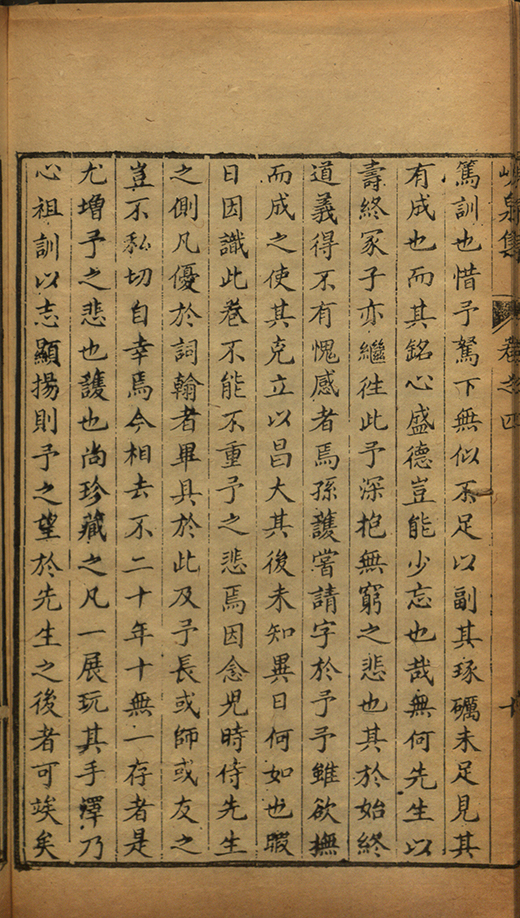 篤訓也惜予駑下無似不足以副其琢礪未足見其
有成也而其銘心盛德豈能少忘也哉無何先生以
壽終冢子亦繼徃此予深抱無窮之悲也其於始終
道義得不有愧感者焉孫頀嘗請字於予予雖欲撫
而成之使其克立以昌大其後未知異日何如也暇
日因識此卷不能不重予之悲焉因念兒時侍先生
之側凡優於詞翰者畢具於此及予長或師或友之
豈不私切自幸焉今相去不二十年十無一存者是
尤增予之悲也頀也尚珍藏之凡一展玩其手澤乃
心祖訓以志顯揚則予之望於先生之後者可竢矣
泉集
卷之四